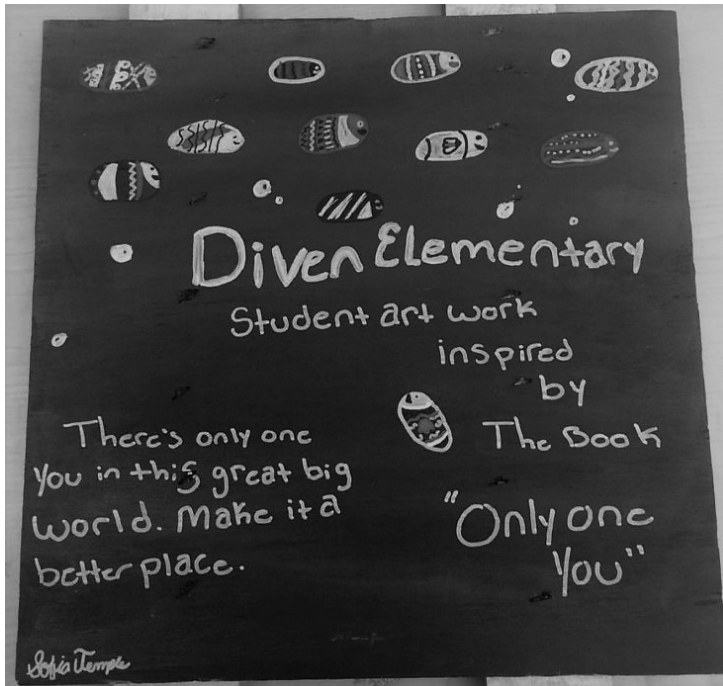 Diven Elementary
Student art work
inspired
by
The Book
"Only one
You"
There's only one
you in this great big
world. Make it a
better place.
Sofia Temple